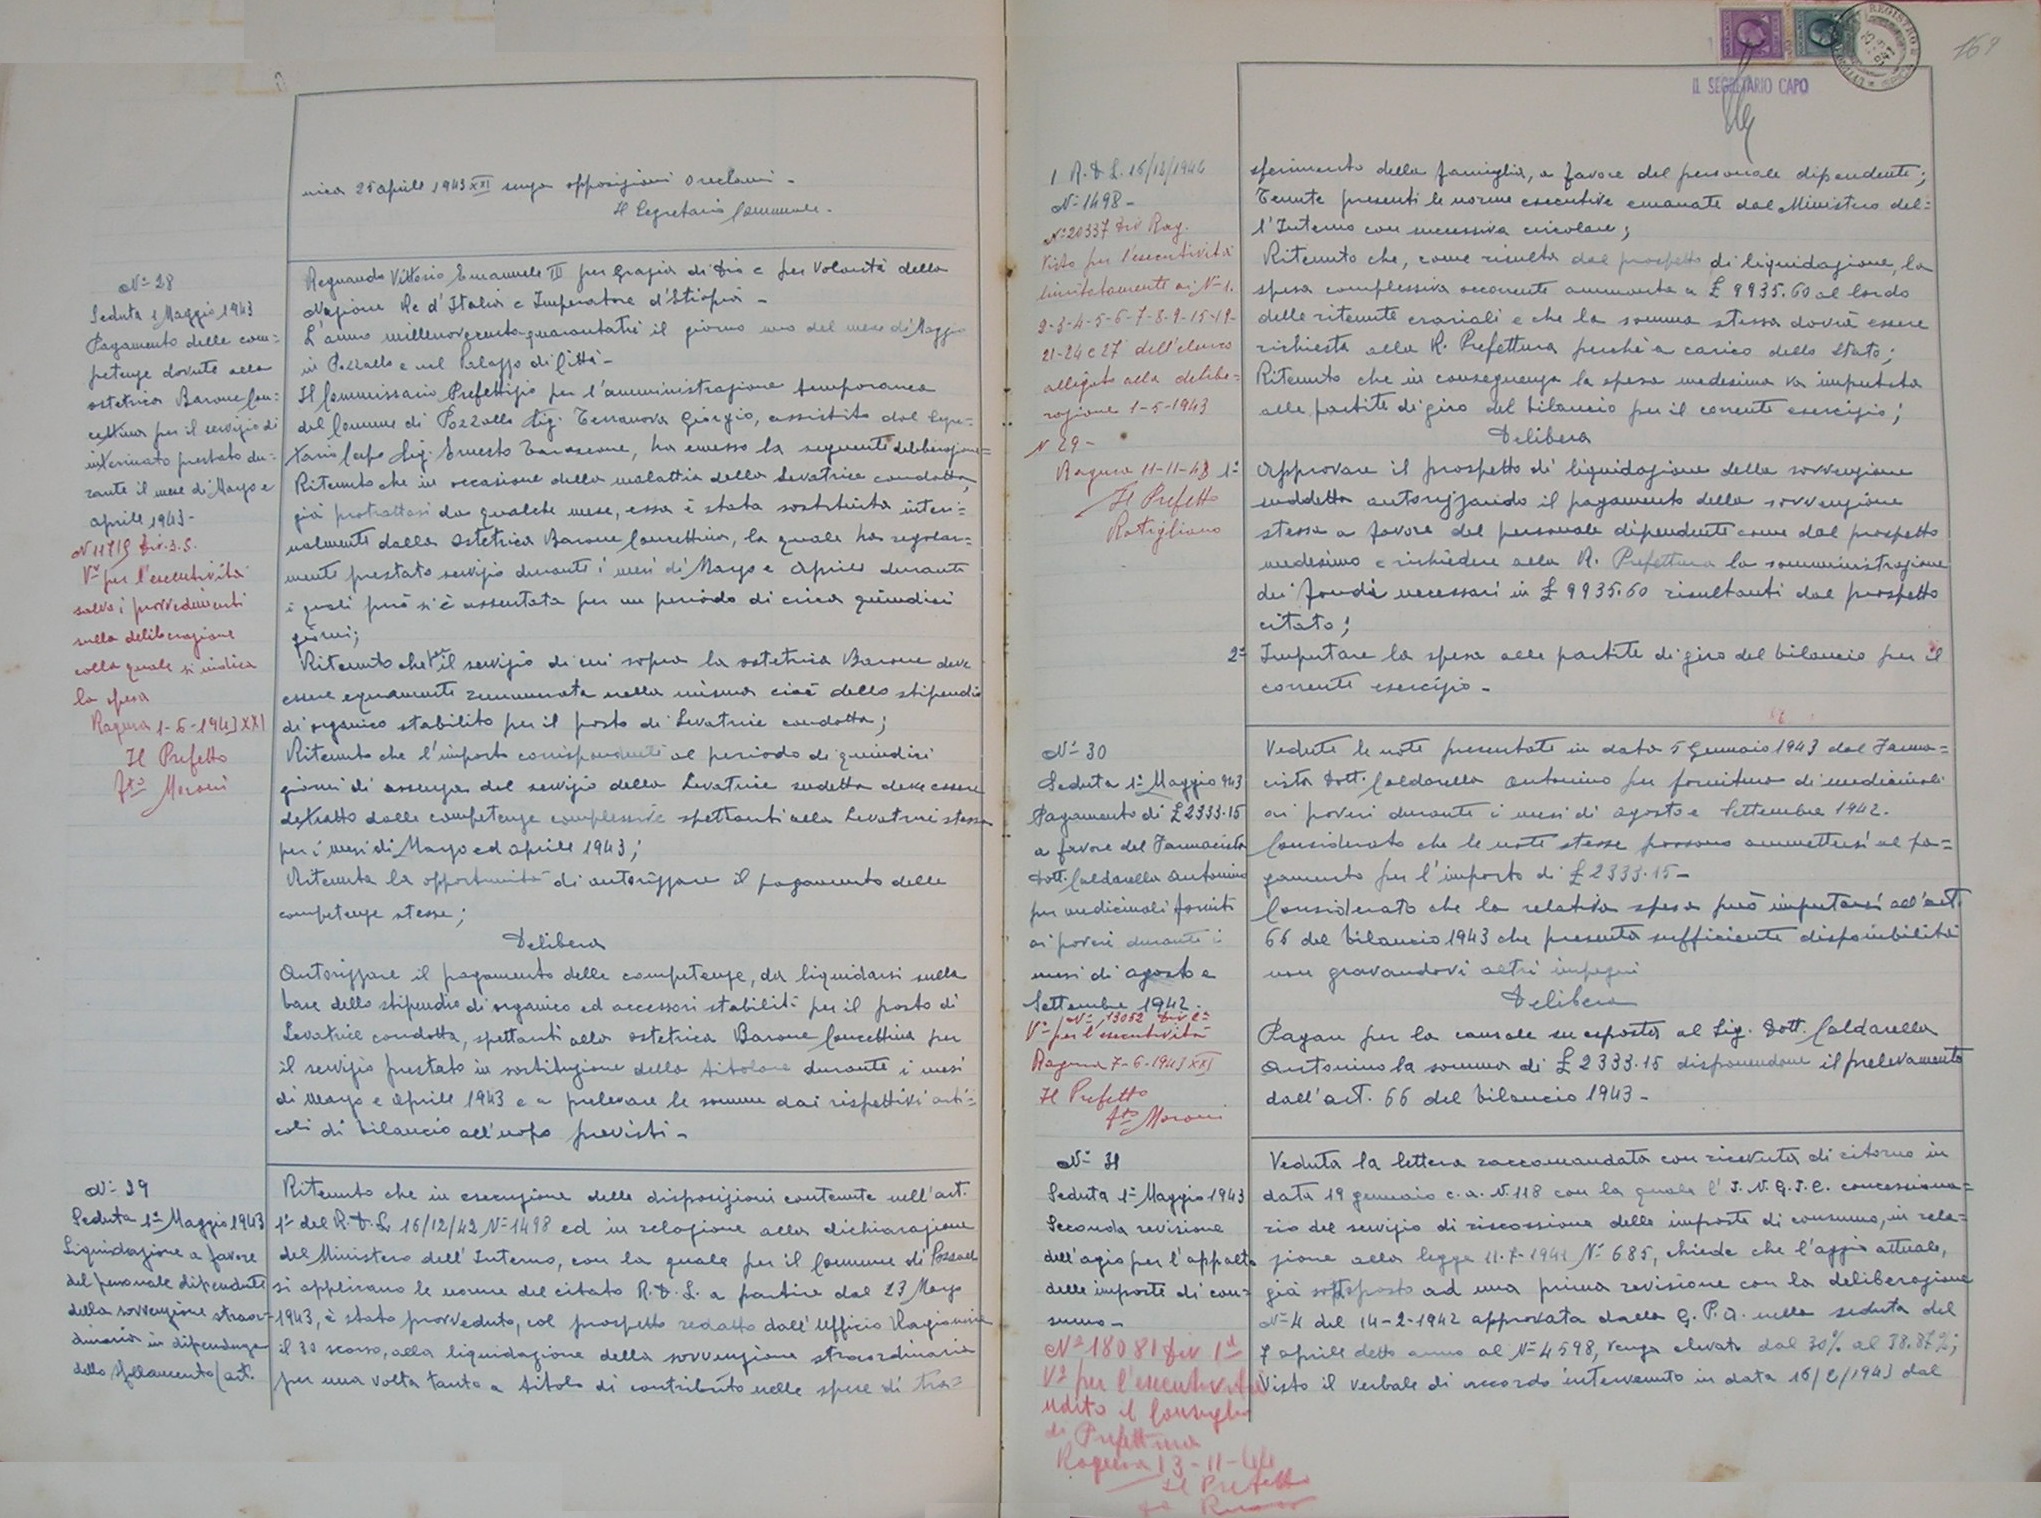 nica 25 aprile 1943 XXI senza opposizioni o reclami -
Il Segretario Comunale -
N° 28
Seduta 1 Maggio 1943
Pagamento delle com=
petenze dovute alla
ostetrica Barone Con=
cettina per il servizio di
interinato prestato du=
rante il mese di Marzo e
aprile 1943 -
N 11715 Div. 3. S.
V° per l'esecutività
salvo i provvedimenti
sulla deliberazione
colla quale si indica
la spesa
Ragusa 1-6-1943 XXI
Il Prefetto
Fto Moroni
Regnando Vittorio Emanuele III per grazia di Dio e per Volontà della
Nazione Re d'Italia e Imperatore d'Etiopia -
L'anno millenovecentoquarantatrè il giorno uno del mese di Maggio
in Pozzallo e nel Palazzo di Città -
Il Commissario Prefettizio per l'amministrazione temporanea
del Comune di Pozzallo Sig. Terranova Giorgio, assistito dal Segre=
tario Capo Sig. Ernesto Tarascone, ha emesso la seguente deliberazione=
Ritenuto che in occasione della malattia della Levatrice condotta,
già protrattasi da qualche mese, essa è stata sostituita interi=
nalmente dalla ostetrica Barone Concettina, la quale ha regolar=
mente prestato servizio durante i mesi di Marzo e Aprile durante
i quali però si è assentata per un periodo di circa quindici
giorni;
Ritenuto che per il servizio di cui sopra la ostetrica Barone deve
essere equamente remunerata nella misura cioè dello stipendio
di organico stabilito per il posto di Levatrice condotta;
Ritenuto che l'importo corrispondente al periodo di quindici
giorni di assenza dal servizio della Levatrice sudetta deve essere
detratto dalle competenze complessive spettanti alla Levatrice stessa
per i mesi di Marzo ed aprile 1943;
Ritenuta la opportunità di autorizzare il pagamento delle
competenze stesse;
Delibera
Autorizzare il pagamento delle competenze, da liquidarsi sulla
base dello stipendio di organico ed accessori stabiliti per il posto di
Levatrice condotta, spettanti alla ostetrica Barone Concettina per
il servizio prestato in sostituzione della titolare durante i mesi
di Marzo e Aprile 1943 e a prelevare le somme dai rispettivi arti=
coli di bilancio all'uopo previsti -
N° 29
Seduta 1° Maggio 1943
Liquidazione a favore
del personale dipendente
della sovvenzione straor=
dinaria in dipendenza
dello sfollamento (art.
Ritenuto che in esecuzione delle disposizioni contenute nell'art.
1° del R.D.L. 16/12/42 N° 1498 ed in relazione alla dichiarazione
del Ministero dell'Interno, con la quale per il Comune di Pozzallo
si applicano le norme del citato R.D.L. a partire dal 23 Marzo
1943, è stato provveduto, col prospetto redatto dall'Ufficio Ragioneria
il 30 scorso, alla liquidazione della sovvenzione straordinaria
per una volta tanto a titolo di contributo nelle spese di tra=
IL SEGRETARIO CAPO
169
1 R.D.L. 16/12/1942
N° 1498 -
N° 20337 Div Rag.
Visto per l'esecutività
limitatamente ai N° 1.
2-3-4-5-6-7-8-9-15-19-
21-24 e 27 dell'elenco
allegato alla delibe=
razione 1-5-1943
N 29 -
Ragusa 11-11-43
Il Prefetto
Rotigliano
sferimento della famiglia, a favore del personale dipendente;
Tenute presenti le norme esecutive emanate dal Ministero del=
l'Interno con successiva circolare;
Ritenuto che, come risulta dal prospetto di liquidazione, la
spesa complessiva occorrente ammonta a £ 9935.60 al lordo
delle ritenute erariali e che la somma stessa dovrà essere
richiesta alla R. Prefettura perchè a carico dello Stato;
Ritenuto che in conseguenza la spesa medesima va imputata
alle partite di giro del bilancio per il corrente esercizio;
Delibera
1° Approvare il prospetto di liquidazione della sovvenzione
suddetta autorizzando il pagamento della sovvenzione
stessa a favore del personale dipendente come dal prospetto
medesimo e richiedere alla R. Prefettura la somministrazione
dei fondi necessari in £ 9935.60 risultanti dal prospetto
citato;
2° Imputare la spesa alle partite di giro del bilancio per il
corrente esercizio -
N° 30
Seduta 1° Maggio 943
Pagamento di £ 2333.15
a favore del Farmacista
Dott. Caldarella Antonino
per medicinali forniti
ai poveri durante i
mesi di agosto e
Settembre 1942 -
N° 13052 Div 2°
V° per l'esecutività
Ragusa 7-6-1943 XXI
Il Prefetto
Fto Moroni
Vedute le note presentate in data 5 Gennaio 1943 dal Farma=
cista Dott. Caldarella Antonino per fornitura di medicinali
ai poveri durante i mesi di agosto e Settembre 1942.
Considerato che le note stesse possono ammettersi al pa=
gamento per l'importo di £ 2333.15 -
Considerato che la relativa spesa può imputarsi all'art.
66 del bilancio 1943 che presenta sufficiente disponibilità
non gravandovi altri impegni
Delibera
Pagare per la causale su esposta al Sig. Dott. Caldarella
Antonino la somma di £ 2333.15 disponendone il prelevamento
dall'art. 66 del bilancio 1943 -
N° 31
Seduta 1° Maggio 1943
Seconda revisione
dell'agio per l'appalto
delle imposte di con=
sumo -
N° 18081 Div 1ª
V° per l'esecutività
udito il Consiglio
di Prefettura
Ragusa 13-11-44
Il Prefetto
Veduta la lettera raccomandata con ricevuta di ritorno in
data 19 gennaio c.a. N. 118 con la quale l'I.N.G.I.C. concessiona=
rio del servizio di riscossione delle imposte di consumo, in rela=
zione alla legge 11-7-1941 N° 685, chiede che l'aggio attuale,
già sottoposto ad una prima revisione con la deliberazione
N° 4 del 14-2-1942 approvata dalla G.P.A. nella seduta del
7 aprile detto anno al N° 4598, venga elevato dal 30% al 38.87%;
Visto il verbale di accordo intervenuto in data 16/2/1943 dal